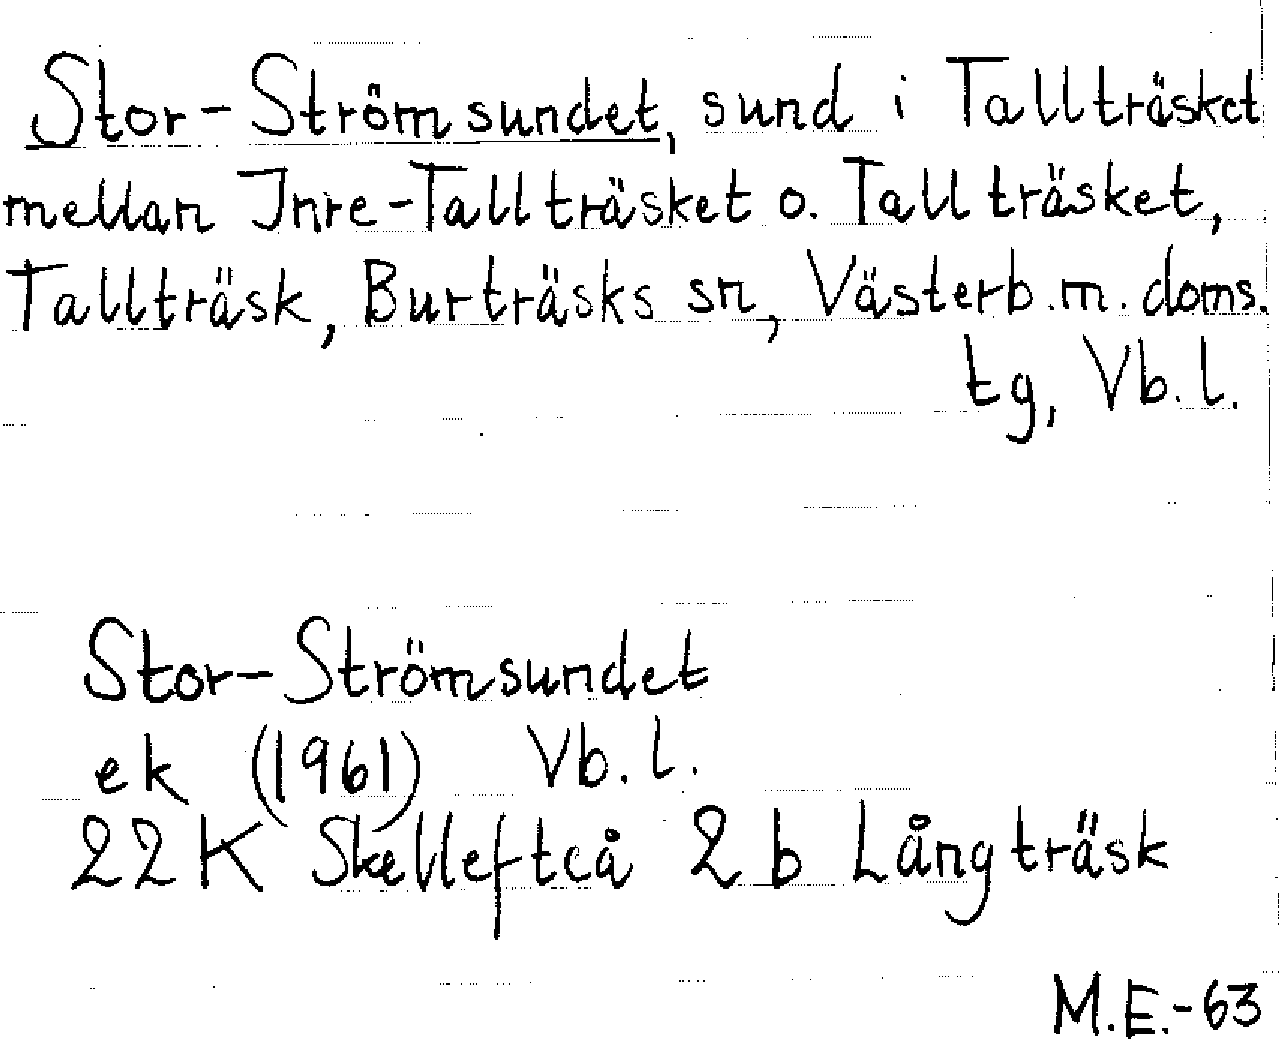 Stor-Strömsundet, sund i Tallträsket
mellan Inre-Tallträsket o. Tallträsket,
Tallträsk, Burträsks sn, Västerb.m. doms.
tg, Vb. l.
Stor-Strömsundet
ek (1961) Vb. l.
22K Skellefteå 2b Långträsk
M.E.-63